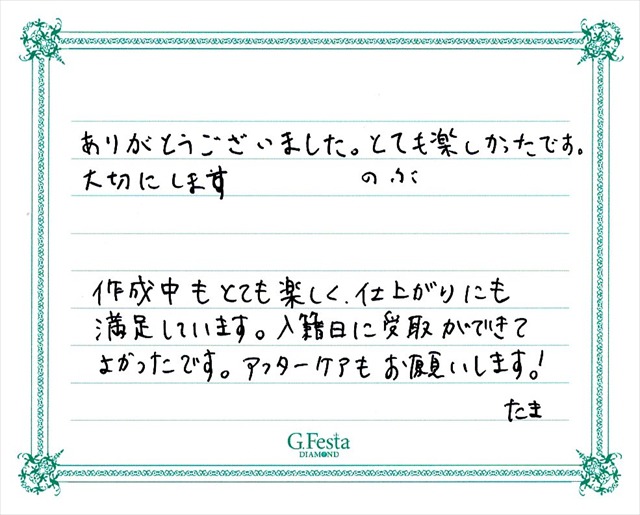 ありがとうございました。とても楽しかったです。
大切にします のぶ
作成中もとても楽しく、仕上がりにも
満足しています。入籍日に受取ができて
よかったです。アフターケアもお願いします!
たま
G.Festa
DIAMOND